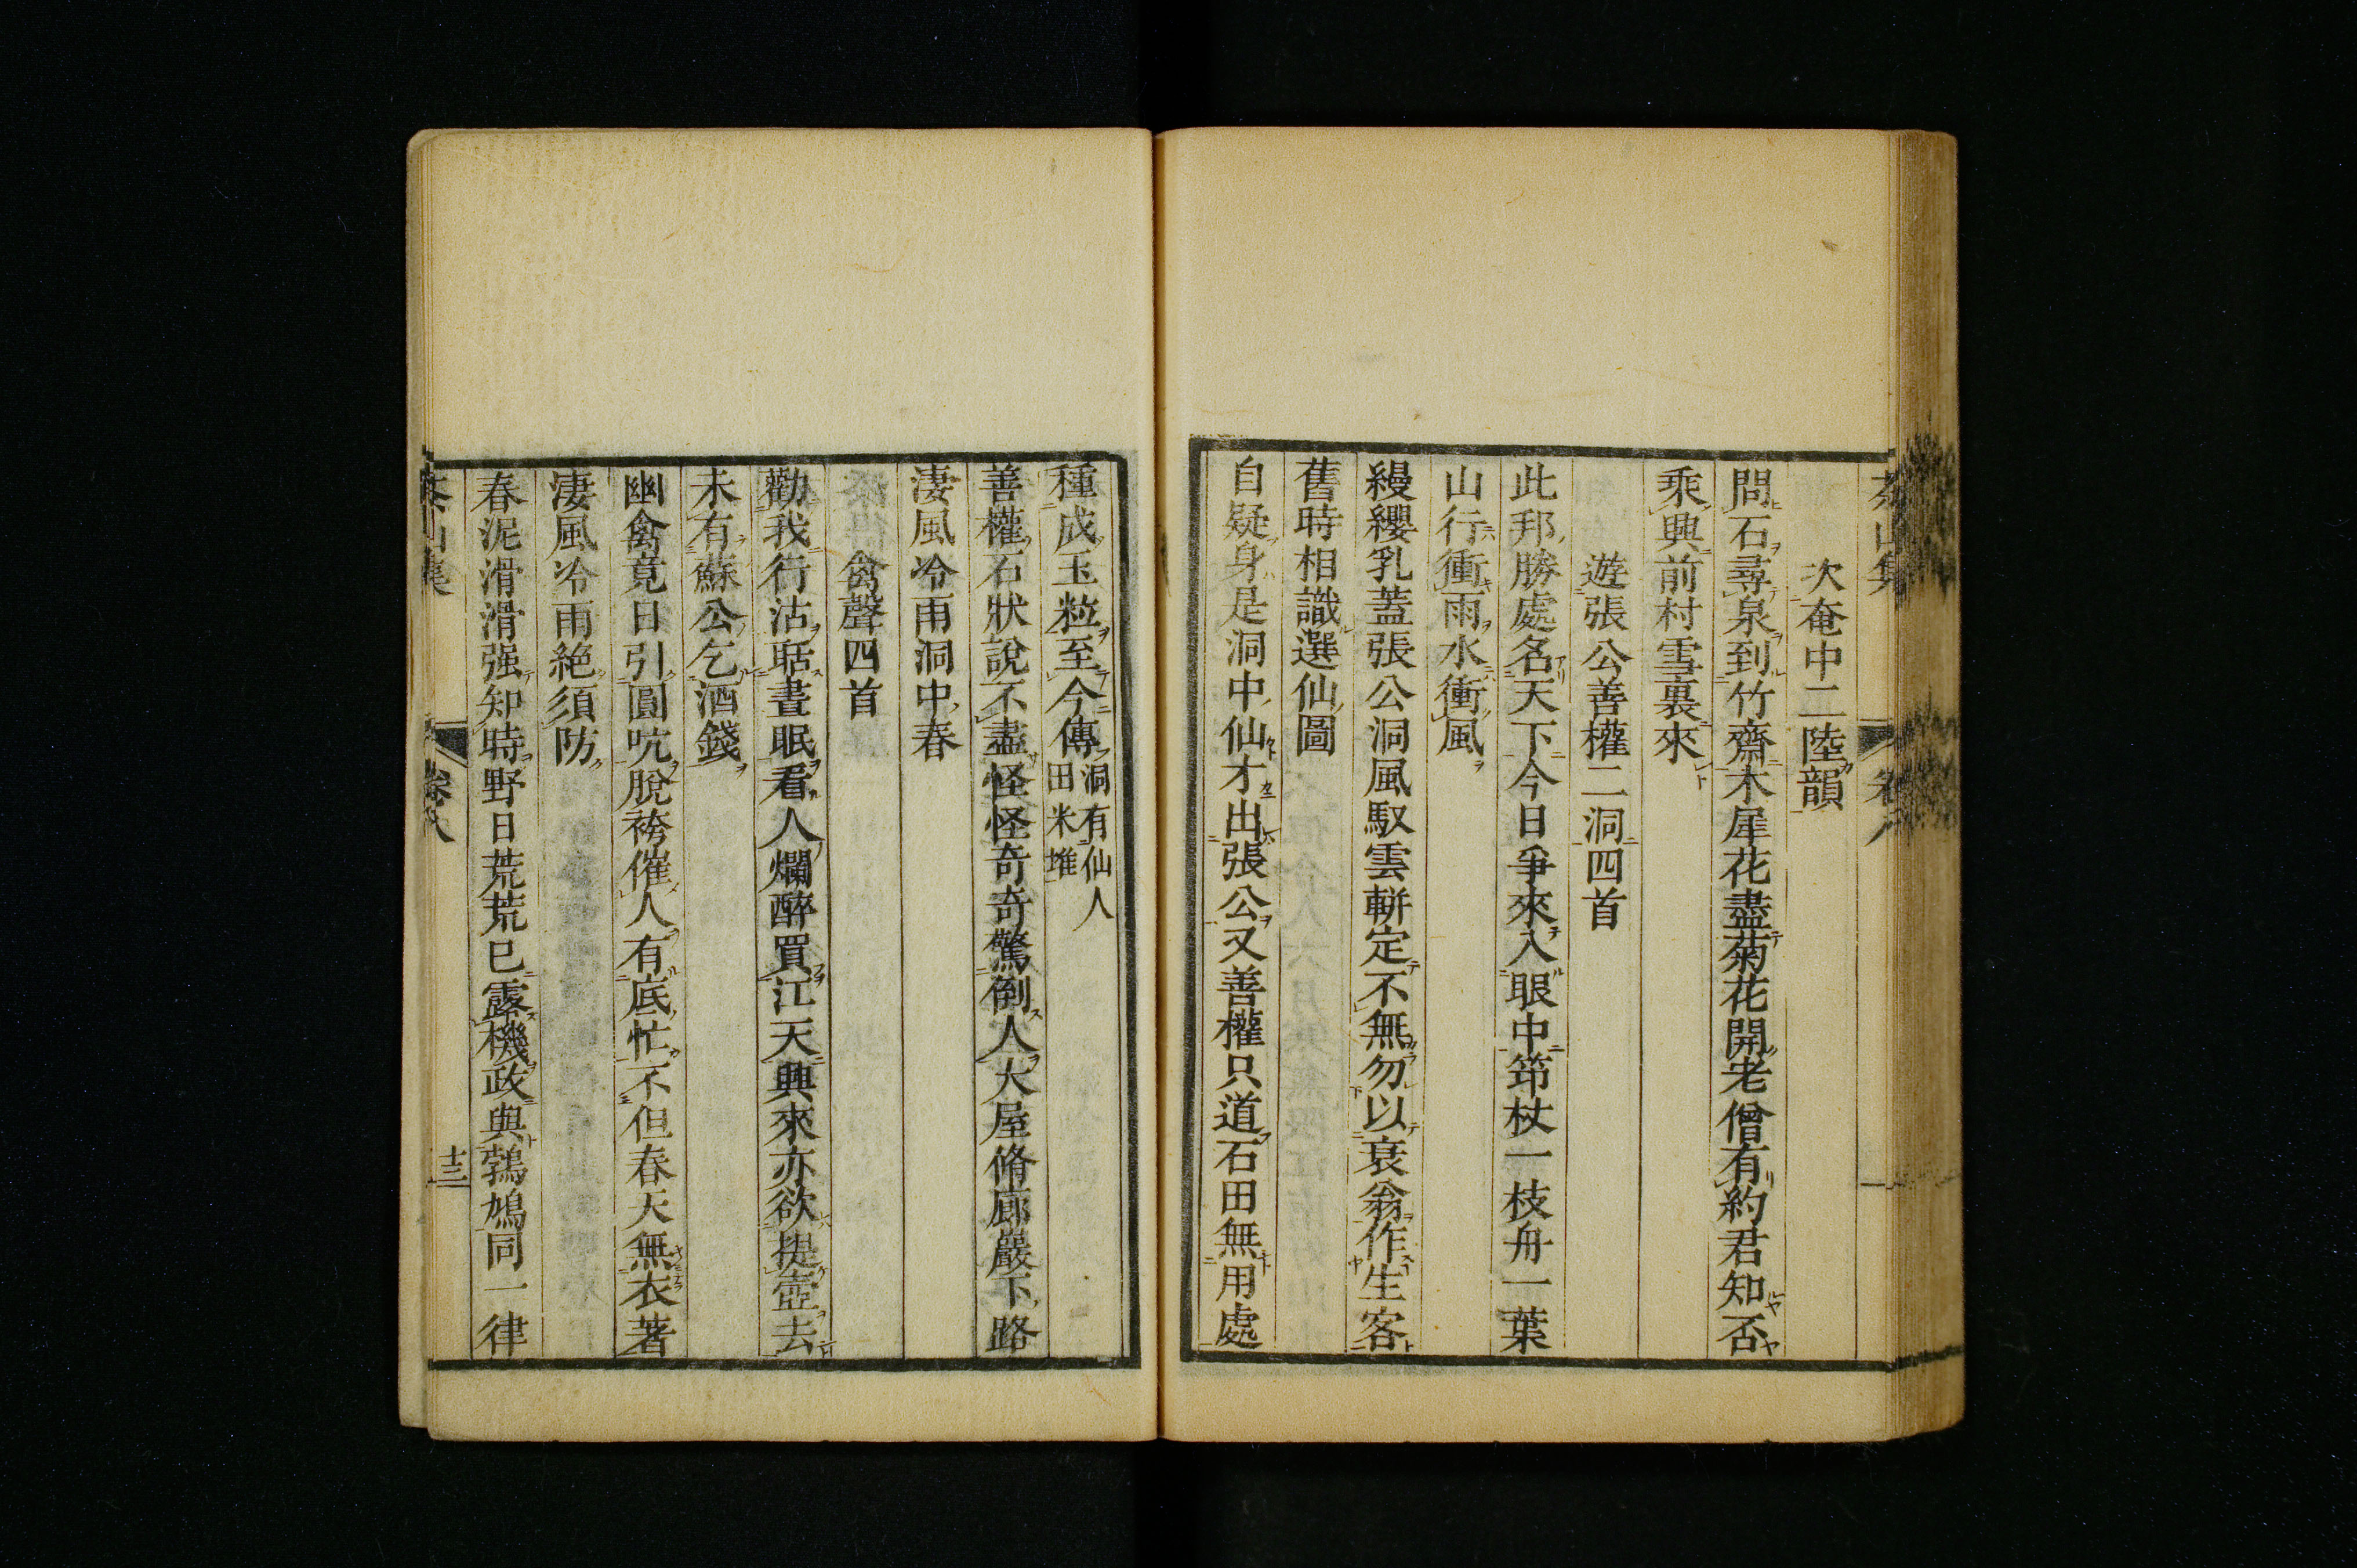 茶山集 卷八
次奄中二陸韻
問石尋泉到竹齋木犀花盡菊花開老僧有約君知否
乘興前村雪裏來
遊張公善權二洞四首
此邦勝處名天下今日爭來入眼中笻杖一枝舟一葉
山行衝雨水衝風
縵纓乳蓋張公洞風馭雲軿定不無勿以衰翁作生客
舊時相識選仙圖
自疑身是洞中仙才出張公又善權只道石田無用處
種成玉粒至今傳洞有仙人田米堆
善權石狀說不盡怪怪奇奇驚倒人大屋脩廊巖下路
淒風冷雨洞中春
禽聲四首
勸我行沽聒晝眠看人爛醉買江天興來亦欲提壺去
未有蘇公乞酒錢
幽禽竟日引圓吭脫袴催人有底忙不但春天無衣著
淒風冷雨絕須防
春泥滑滑强知時野日荒荒已露機政與鵓鳩同一律
茶山集 卷八 十三